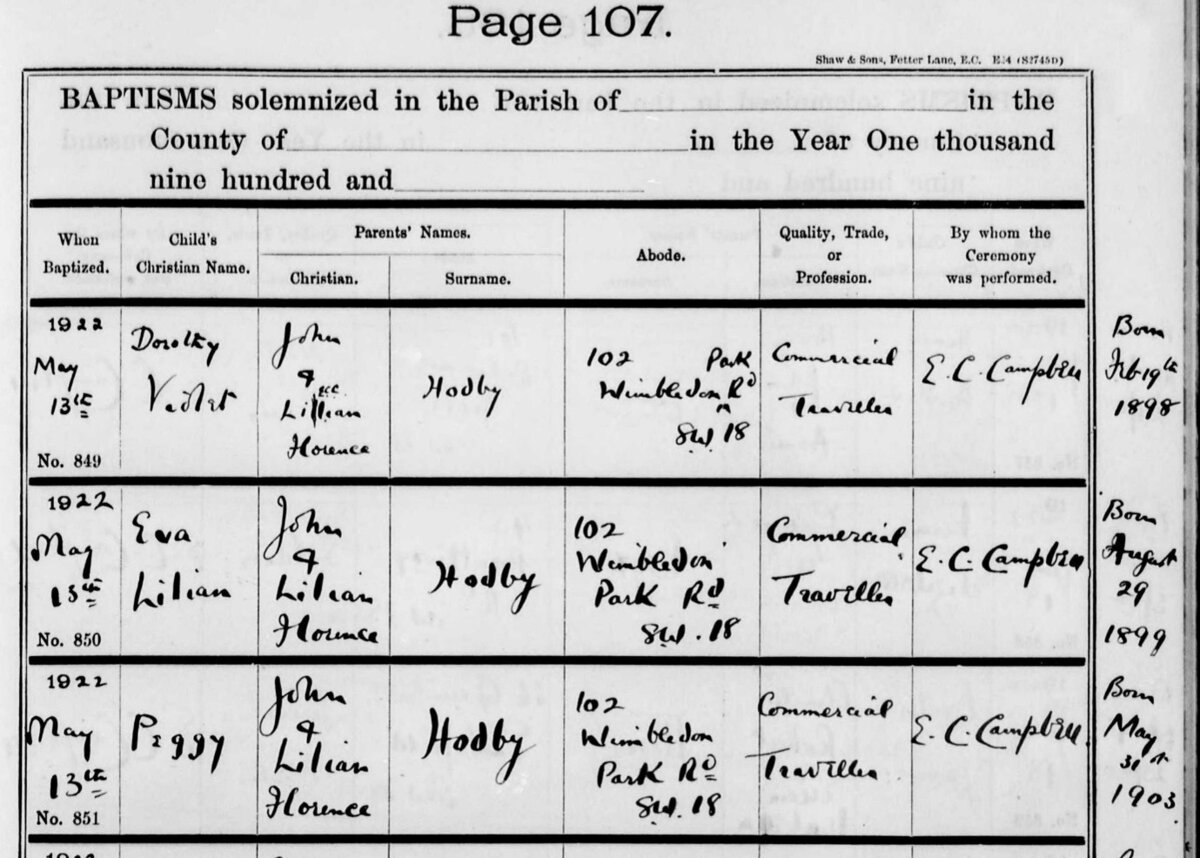 Page 107.
Shaw & Sons, Fetter Lane, E.C. E14 (82745D)
BAPTISMS solemnized in the Parish of in the
County of in the Year One thousand
nine hundred and
When Baptized.
Child's Christian Name.
Parents' Names.
Christian.
Surname.
Abode.
Quality, Trade, or Profession.
By whom the Ceremony was performed.
1922
May
13th
No. 849
Dorothy
Violet
John
&
Lilian
Florence
Hodby
102 Park
Wimbledon Rd
SW 18
Commercial
Traveller
E. C. Campbell
Born
Feb 19th
1898
1922
May
13th
No. 850
Eva
Lilian
John
&
Lilian
Florence
Hodby
102
Wimbledon
Park Rd
SW. 18
Commercial
Traveller
E. C. Campbell
Born
August
29
1899
1922
May
13th
No. 851
Peggy
John
&
Lilian
Florence
Hodby
102
Wimbledon
Park Rd
SW. 18
Commercial
Traveller
E. C. Campbell
Born
May
31st
1903